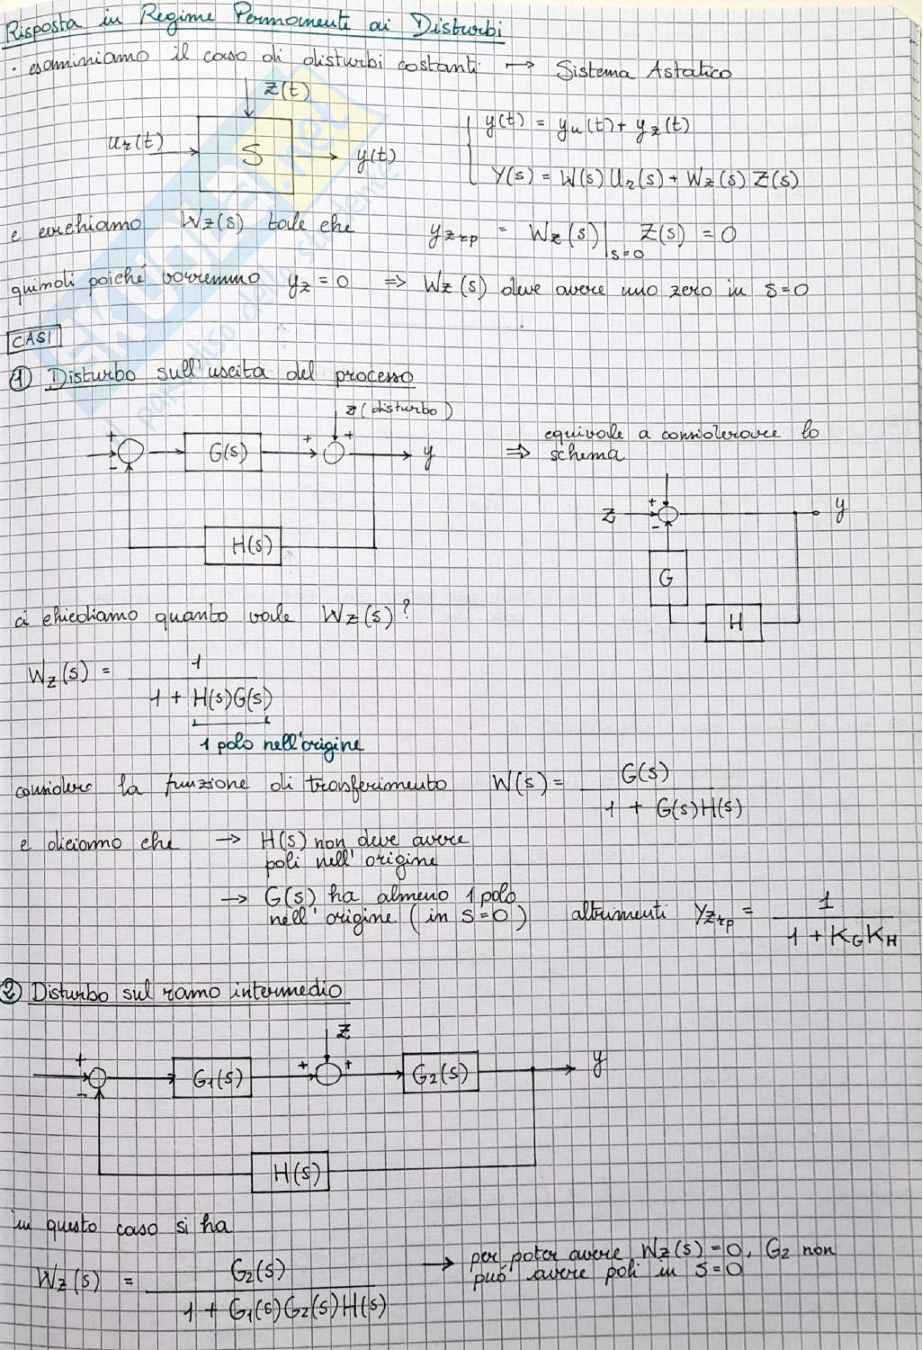 Risposta in Regime Permanente ai Disturbi
· esaminiamo il caso di disturbi costanti → Sistema Astatico
z(t)
ur(t) S y(t)
y(t) = yu(t) + yz(t)
Y(s) = W(s) Ur(s) + Wz(s) Z(s)
e cerchiamo Wz(s) tale che yzrp = Wz(s)|s=0 Z(s) = 0
quindi poiché vorremmo yz = 0 ⇒ Wz(s) deve avere uno zero in s=0
CASI
① Disturbo sull'uscita del processo
z (disturbo)
+ - G(s) + + y
H(s)
⇒ equivale a considerare lo
schema
z + - y
G
H
ci chiediamo quanto vale Wz(s)?
Wz(s) = 1
1 + H(s)G(s)
1 polo nell'origine
considero la funzione di trasferimento W(s) = G(s)
1 + G(s)H(s)
e diciamo che → H(s) non deve avere
poli nell'origine
→ G(s) ha almeno 1 polo
nell'origine (in s=0) altrimenti Yzrp = 1
1 + KG KH
② Disturbo sul ramo intermedio
z
+ - G1(s) + + G2(s) y
H(s)
in questo caso si ha
Wz(s) = G2(s)
1 + G1(s)G2(s)H(s)
→ per poter avere Wz(s) = 0, G2 non
può avere poli in s=0